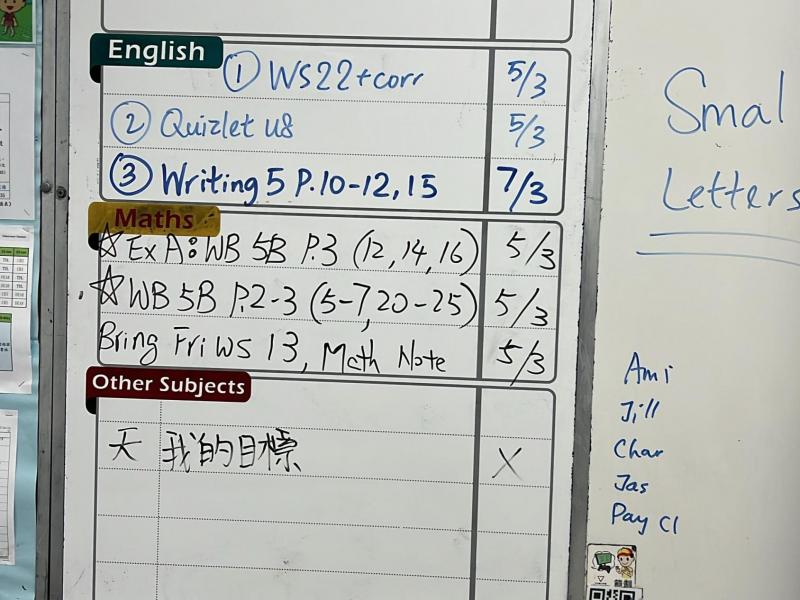 English
① WS22+corr 5/3
② Quizlet U8 5/3
③ Writing 5 P.10-12, 15 7/3
Maths
☆ Ex A: WB 5B P.3 (12, 14, 16) 5/3
☆ WB 5B P.2-3 (5-7, 20-25) 5/3
Bring Fri WS 13, Math Note 5/3
Other Subjects
天 我的目標 X
Smal
Letters
Ami
Jill
Char
Jas
Pay Cl